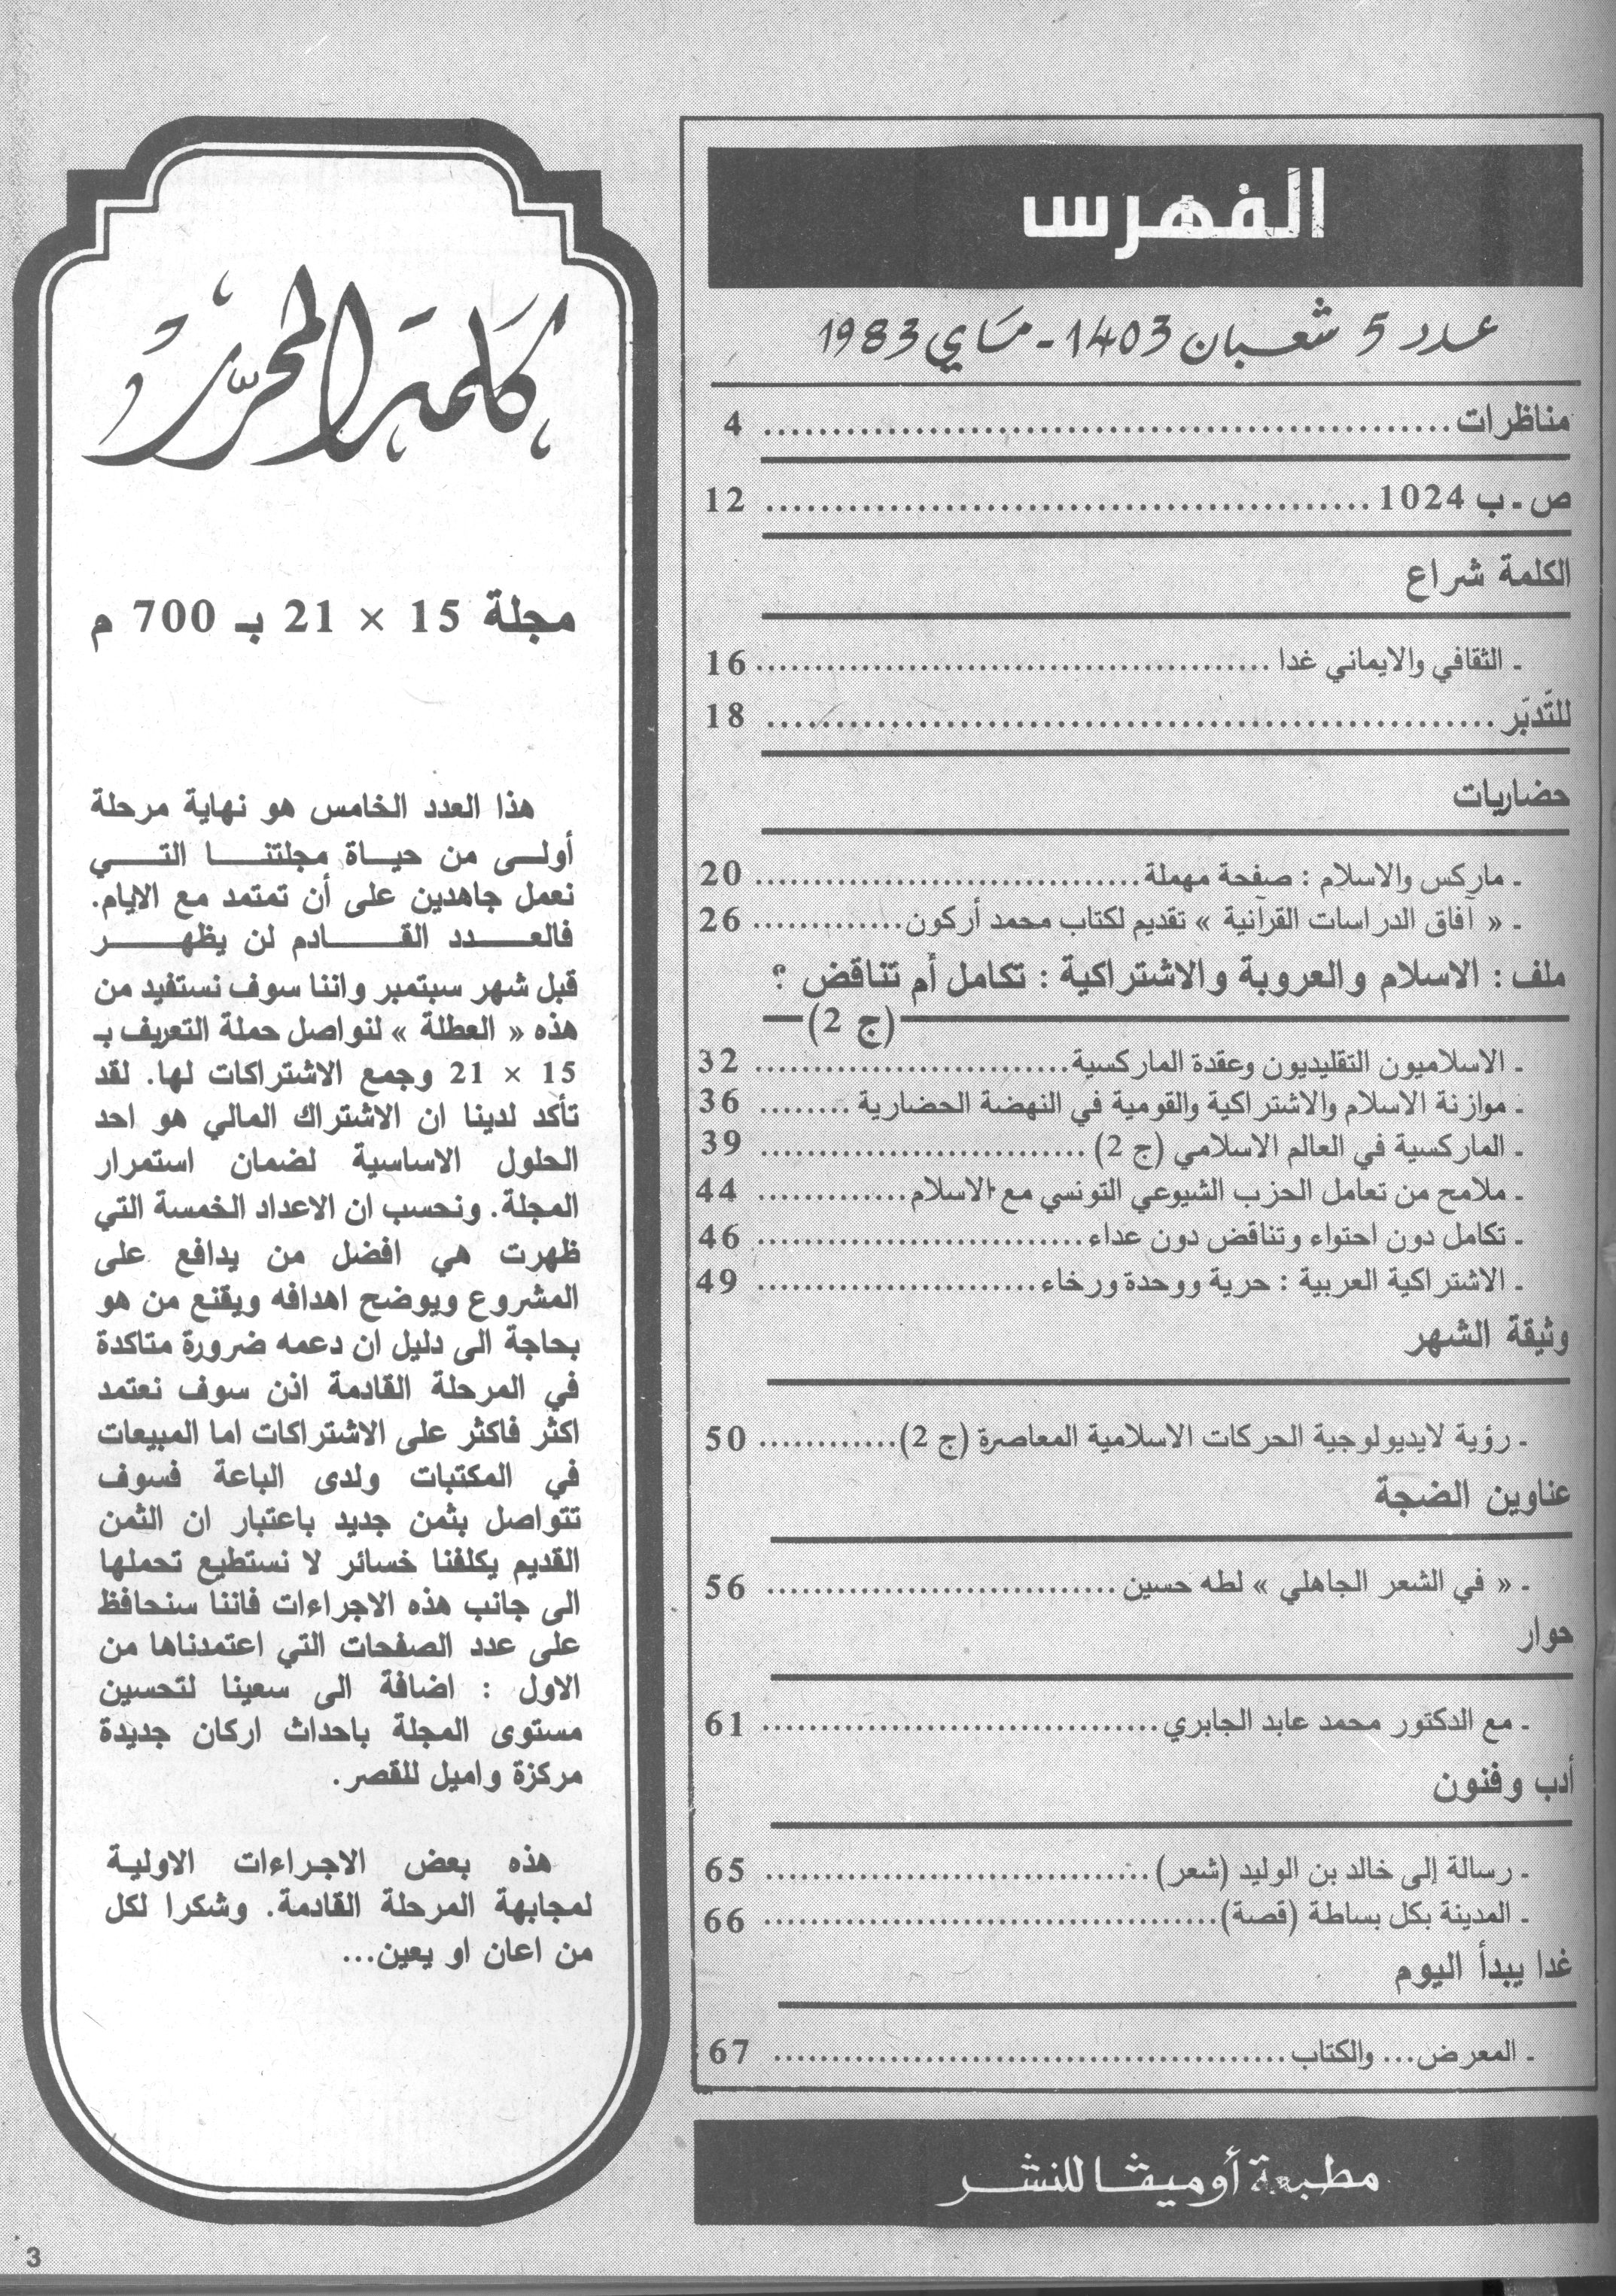 الفهرس
عدد 5 شعبان 1403 - ماي 1983
مناظرات .................................................. 4
ص ـ ب 1024 ............................................ 12
الكلمة شراع
ـ الثقافي والايماني غدا ...................................... 16
للتّدبّر .................................................... 18
حضاريات
ـ ماركس والاسلام : صفحة مهملة ............................ 20
ـ « آفاق الدراسات القرآنية » تقديم لكتاب محمد أركون ............. 26
ملف : الاسلام والعروبة والاشتراكية : تكامل أم تناقض ؟
(ج 2)
ـ الاسلاميون التقليديون وعقدة الماركسية ........................ 32
ـ موازنة الاسلام والاشتراكية والقومية في النهضة الحضارية ........ 36
ـ الماركسية في العالم الاسلامي (ج 2) ........................ 39
ـ ملامح من تعامل الحزب الشيوعي التونسي مع الاسلام ............. 44
ـ تكامل دون احتواء وتناقض دون عداء ........................ 46
ـ الاشتراكية العربية : حرية ووحدة ورخاء ..................... 49
وثيقة الشهر
ـ رؤية لايديولوجية الحركات الاسلامية المعاصرة (ج 2) ............ 50
عناوين الضجة
ـ « في الشعر الجاهلي » لطه حسين .......................... 56
حوار
ـ مع الدكتور محمد عابد الجابري ............................. 61
أدب وفنون
ـ رسالة إلى خالد بن الوليد (شعر) ............................ 65
ـ المدينة بكل بساطة (قصة) .................................. 66
غدا يبدأ اليوم
ـ المعرض ... والكتاب ...................................... 67
مطبعة أوميڤا للنشر
كلمة المحرر
مجلة 15 × 21 بـ 700 م
هذا العدد الخامس هو نهاية مرحلة
أولى من حياة مجلتنا التي
نعمل جاهدين على أن تمتمد مع الايام.
فالعدد القادم لن يظهر
قبل شهر سبتمبر واننا سوف نستفيد من
هذه « العطلة » لنواصل حملة التعريف بـ
15 × 21 وجمع الاشتراكات لها. لقد
تأكد لدينا ان الاشتراك المالي هو احد
الحلول الاساسية لضمان استمرار
المجلة. ونحسب ان الاعداد الخمسة التي
ظهرت هي افضل من يدافع على
المشروع ويوضح اهدافه ويقنع من هو
بحاجة الى دليل ان دعمه ضرورة متاكدة
في المرحلة القادمة اذن سوف نعتمد
اكثر فاكثر على الاشتراكات اما المبيعات
في المكتبات ولدى الباعة فسوف
تتواصل بثمن جديد باعتبار ان الثمن
القديم يكلفنا خسائر لا نستطيع تحملها
الى جانب هذه الاجراءات فاننا سنحافظ
على عدد الصفحات التي اعتمدناها من
الاول : اضافة الى سعينا لتحسين
مستوى المجلة باحداث اركان جديدة
مركزة واميل للقصر.
هذه بعض الاجراءات الاولية
لمجابهة المرحلة القادمة. وشكرا لكل
من اعان او يعين...
3